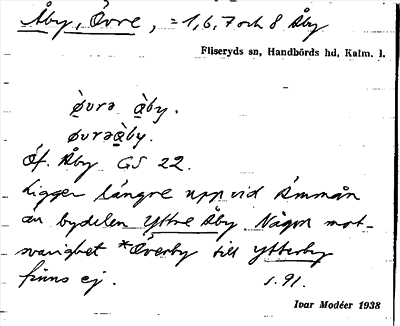 Åby, Övre, = 1, 6, 7 och 8 Åby
Fliseryds sn, Handbörds hd, Kalm. l.
ø̀vrə ɑ̀by.
øvrəɑ̀by.
Öf. Åby GS 22.
Ligger längre upp vid Emmån
än bydelen Yttre Åby. Någon mot-
svarighet *Överby till Ytterby
finns ej. s. 91.
Ivar Modéer 1938